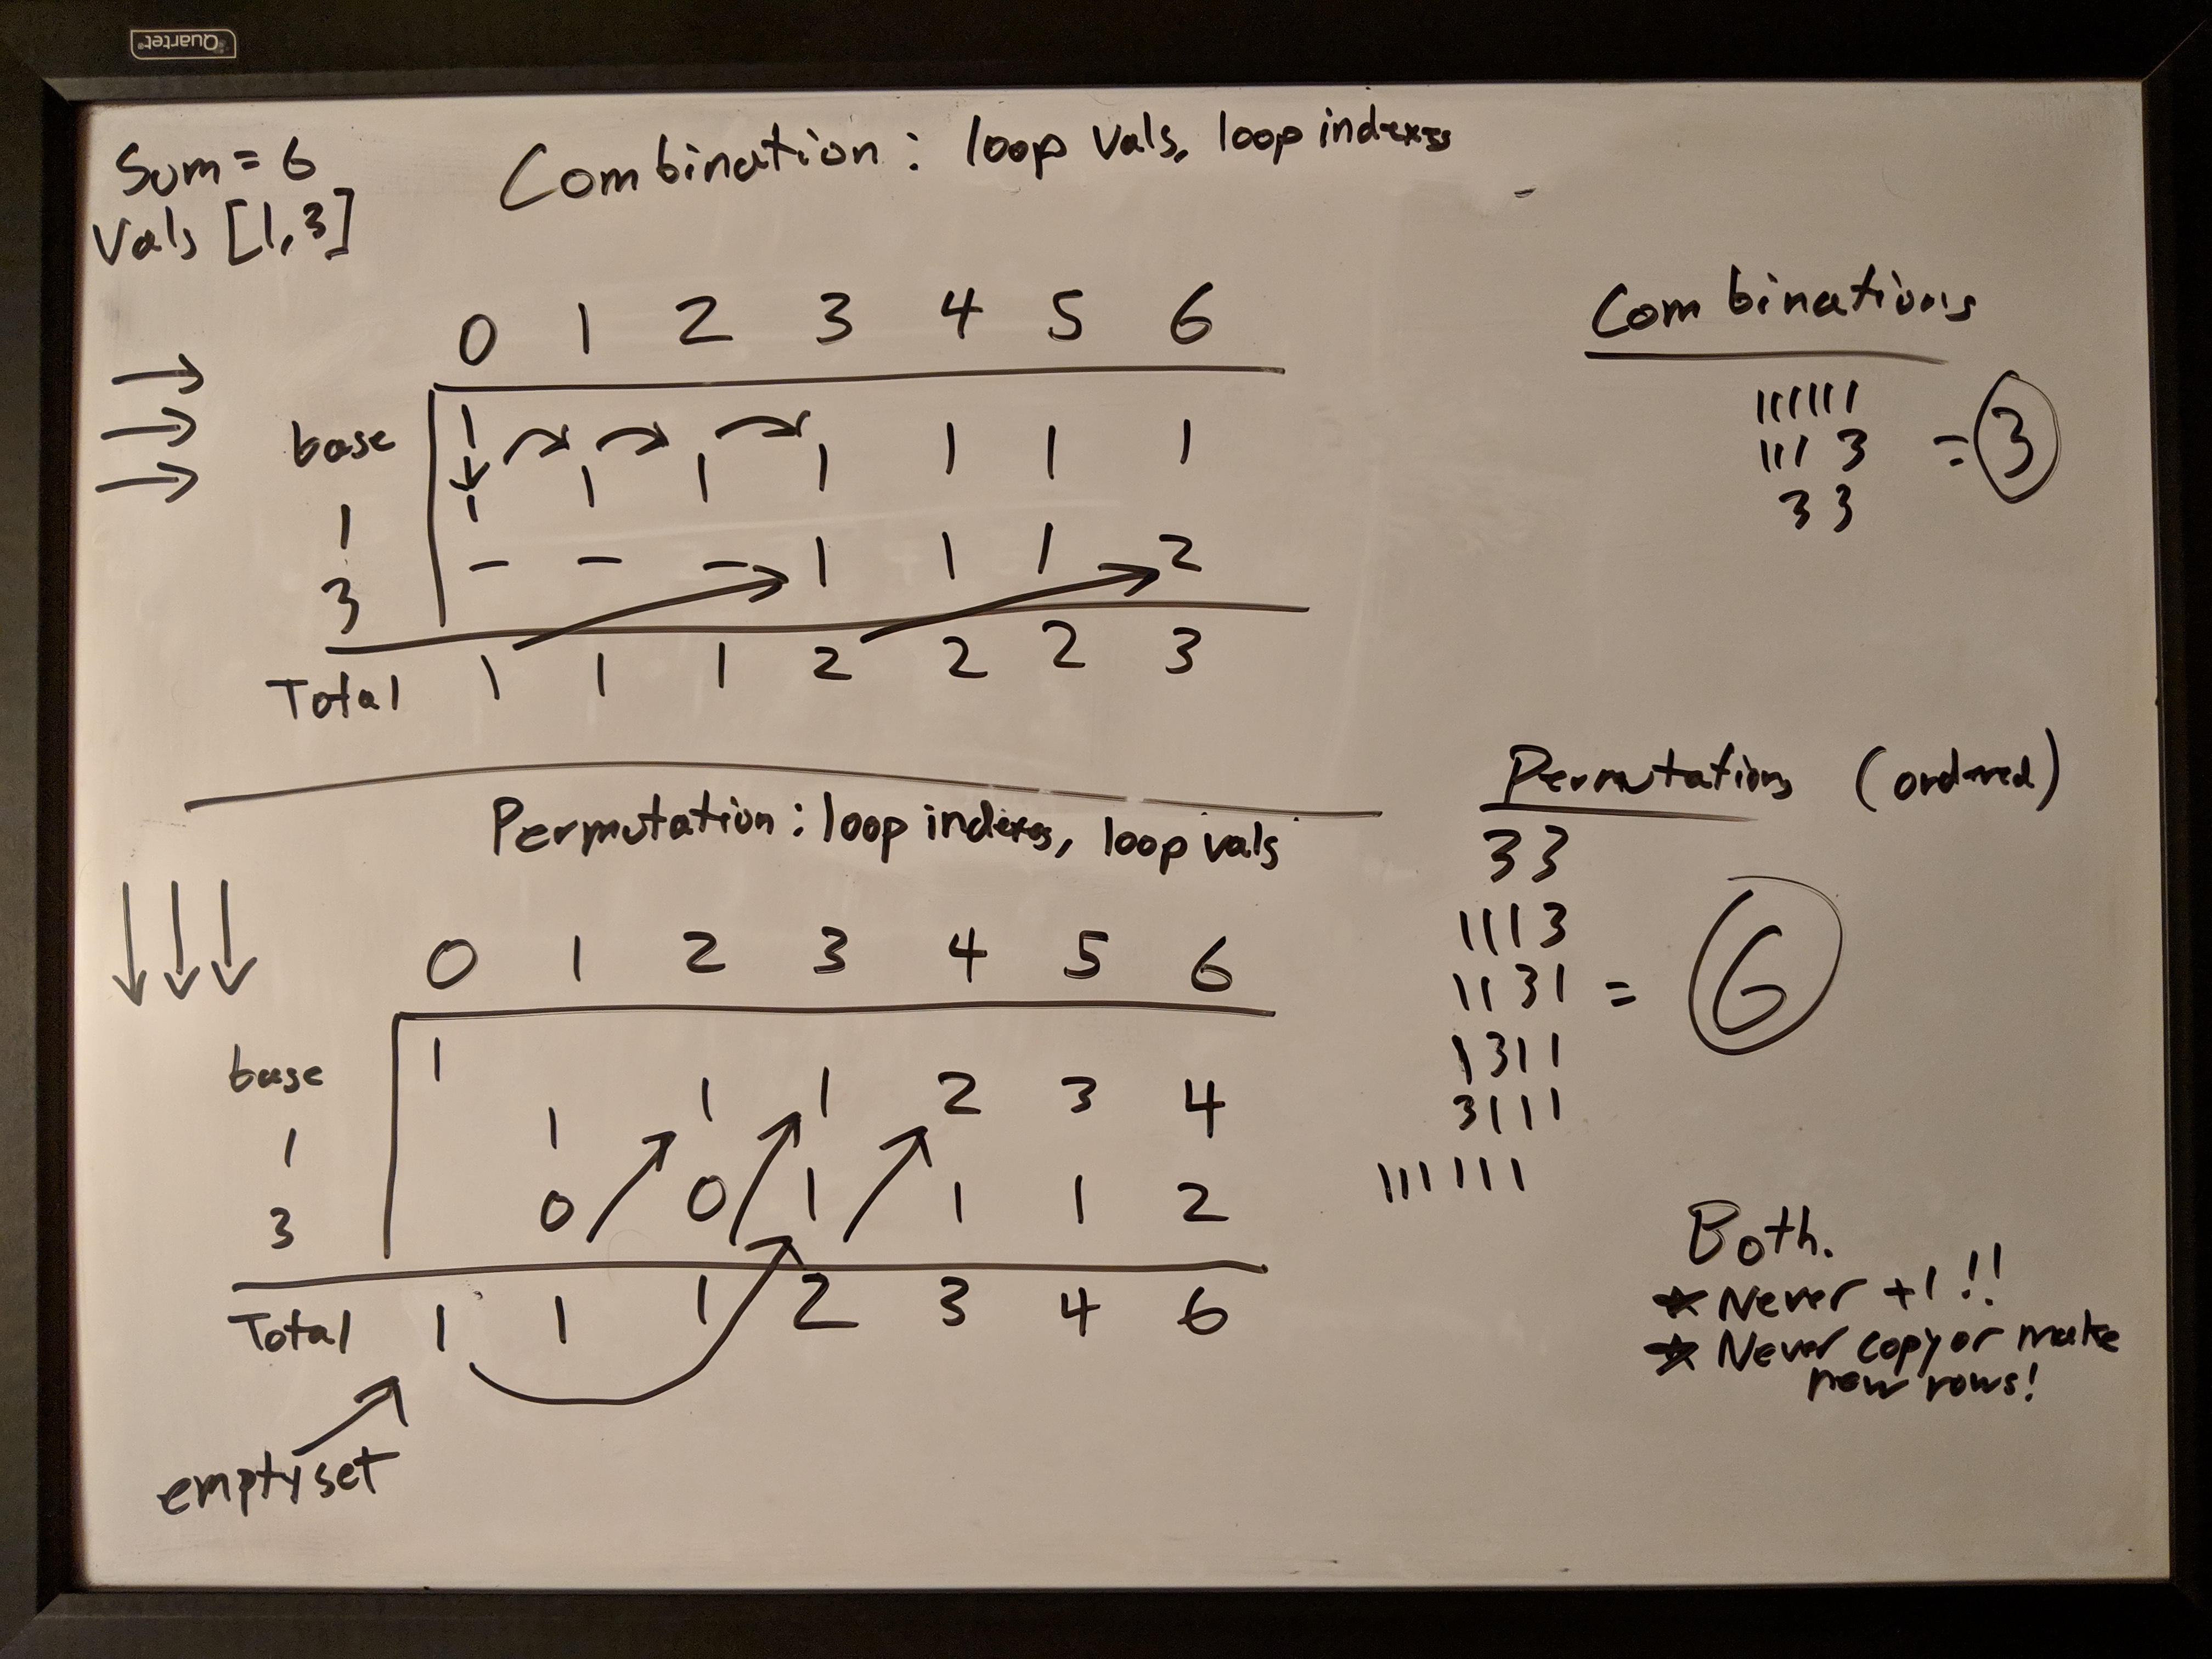 Quartet
Sum = 6
Vals [1,3]
Combination: loop vals, loop indexes
0 1 2 3 4 5 6
base 1
1 1 1 1 1 1 1 1
3 - - - 1 1 1 2
Total 1 1 1 2 2 2 3
Combinations
111111
111 3
3 3
= 3
Permutation: loop indexes, loop vals
0 1 2 3 4 5 6
base 1
1 1 1 1 2 3 4
3 0 0 1 1 1 2
Total 1 1 1 2 3 4 6
empty set
Permutations (ordered)
3 3
1113
1131
1311
3111
111111
= 6
Both.
★ Never +1!!
★ Never copy or make
new rows!